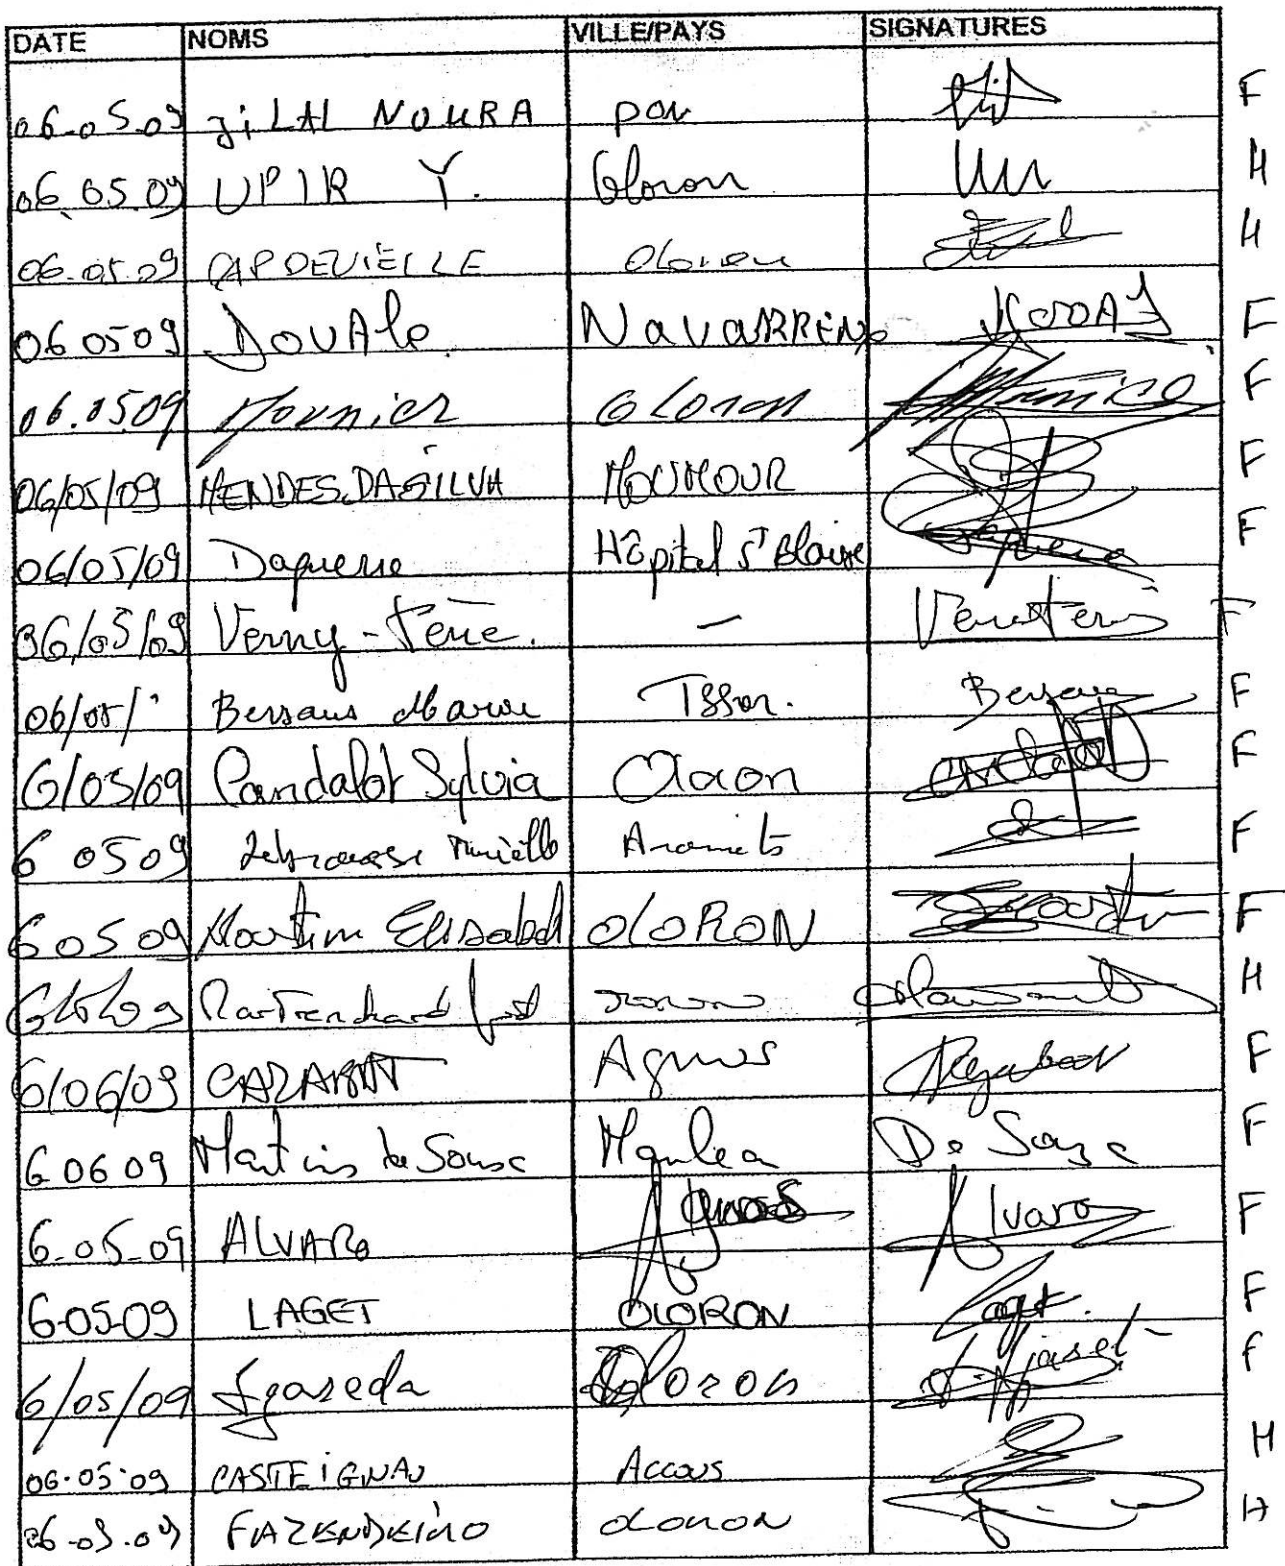 DATE NOMS VILLE/PAYS SIGNATURES
06-05-09 JiLAL NOURA pau F
06.05.09 UPIR Y. Oloron H
06-05-09 CAPDEVIELLE Oloron H
06 05 09 DOUAle NAVARRENX F
06.05 09 Mounier OLoron F
06/05/09 MENDES DASILVA MOUMOUR F
06/05/09 Daguerre Hôpital St Blaise F
06/05/09 Verny-Terie. - F
06/05/ Bersans F
6/05/09 Candalot Sylvia Oloron F
6 05 09 Murielle Aramits F
6 05 09 Martin Elisabeth OLORON F
6/5/09 H
6/06/09 CAZABAT Agnos F
6 06 09 Martins de Sousa Mauleon De Souza F
6-05-09 ALVARO Agnos Alvaro F
6-05-09 LAGET OLORON Laget. F
6/05/09 Oloron F
06-05-09 CASTEIGNAU Accous H
06-05-09 FAZENDEIRO OLORON H